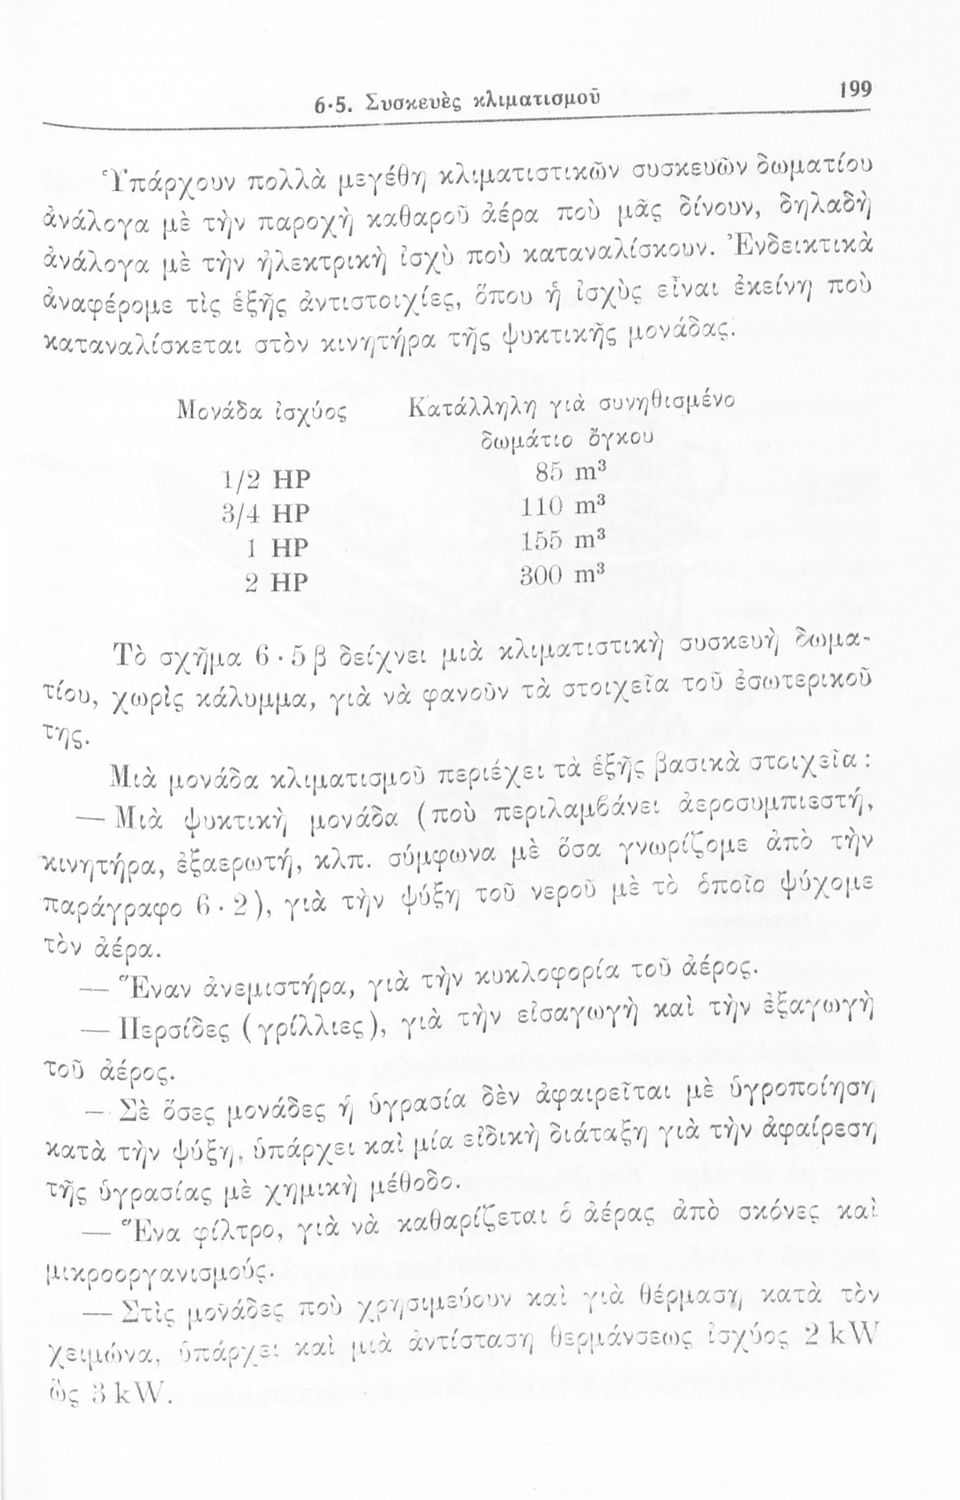 6·5. Συσκευὲς κλιματισμοῦ 199
Ὑπάρχουν πολλὰ μεγέθη κλιματιστικῶν συσκευῶν δωματίου
ἀνάλογα μὲ τὴν παροχὴ καθαροῦ ἀέρα ποὺ μᾶς δίνουν, δηλαδὴ
ἀνάλογα μὲ τὴν ἠλεκτρικὴ ἰσχὺ ποὺ καταναλίσκουν. Ἐνδεικτικὰ
ἀναφέρομε τὶς ἑξῆς ἀντιστοιχίες, ὅπου ἡ ἰσχὺς εἶναι ἐκείνη ποὺ
καταναλίσκεται στὸν κινητήρα τῆς ψυκτικῆς μονάδας.
Μονάδα ἰσχύος Κατάλληλη γιὰ συνηθισμένο
δωμάτιο ὄγκου
1/2 HP 85 m³
3/4 HP 110 m³
1 HP 155 m³
2 HP 300 m³
Τὸ σχῆμα 6·5β δείχνει μιὰ κλιματιστικὴ συσκευὴ δωμα-
τίου, χωρὶς κάλυμμα, γιὰ νὰ φανοῦν τὰ στοιχεῖα τοῦ ἐσωτερικοῦ
της.
Μιὰ μονάδα κλιματισμοῦ περιέχει τὰ ἑξῆς βασικὰ στοιχεῖα :
— Μιὰ ψυκτικὴ μονάδα (ποὺ περιλαμβάνει ἀεροσυμπιεστή,
κινητήρα, ἐξαερωτή, κλπ. σύμφωνα μὲ ὅσα γνωρίζομε ἀπὸ τὴν
παράγραφο 6·2), γιὰ τὴν ψύξη τοῦ νεροῦ μὲ τὸ ὁποῖο ψύχομε
τὸν ἀέρα.
— Ἕναν ἀνεμιστήρα, γιὰ τὴν κυκλοφορία τοῦ ἀέρος.
— Περσίδες (γρίλλιες), γιὰ τὴν εἰσαγωγὴ καὶ τὴν ἐξαγωγὴ
τοῦ ἀέρος.
— Σὲ ὅσες μονάδες ἡ ὑγρασία δὲν ἀφαιρεῖται μὲ ὑγροποίηση
κατὰ τὴν ψύξη, ὑπάρχει καὶ μία εἰδικὴ διάταξη γιὰ τὴν ἀφαίρεση
τῆς ὑγρασίας μὲ χημικὴ μέθοδο.
— Ἕνα φίλτρο, γιὰ νὰ καθαρίζεται ὁ ἀέρας ἀπὸ σκόνες καὶ
μικροοργανισμούς.
— Στὶς μονάδες ποὺ χρησιμεύουν καὶ γιὰ θέρμαση κατὰ τὸν
χειμώνα, ὑπάρχει καὶ μιὰ ἀντίσταση θερμάνσεως ἰσχύος 2 kW
ὣς 3 kW.